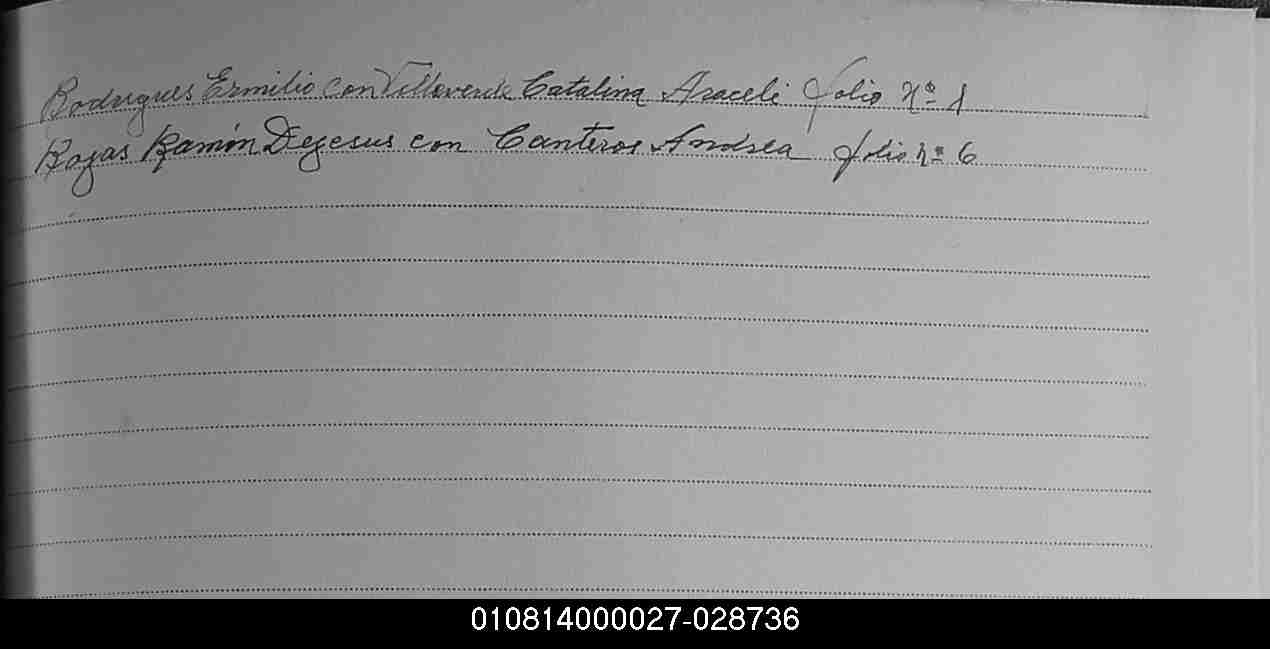 Rodrigues Ermilio con Villaverde Catalina Araceli folio nº 1
Rojas Ramón Dejesus con Canteros Andrea folio nº 6
010814000027-028736